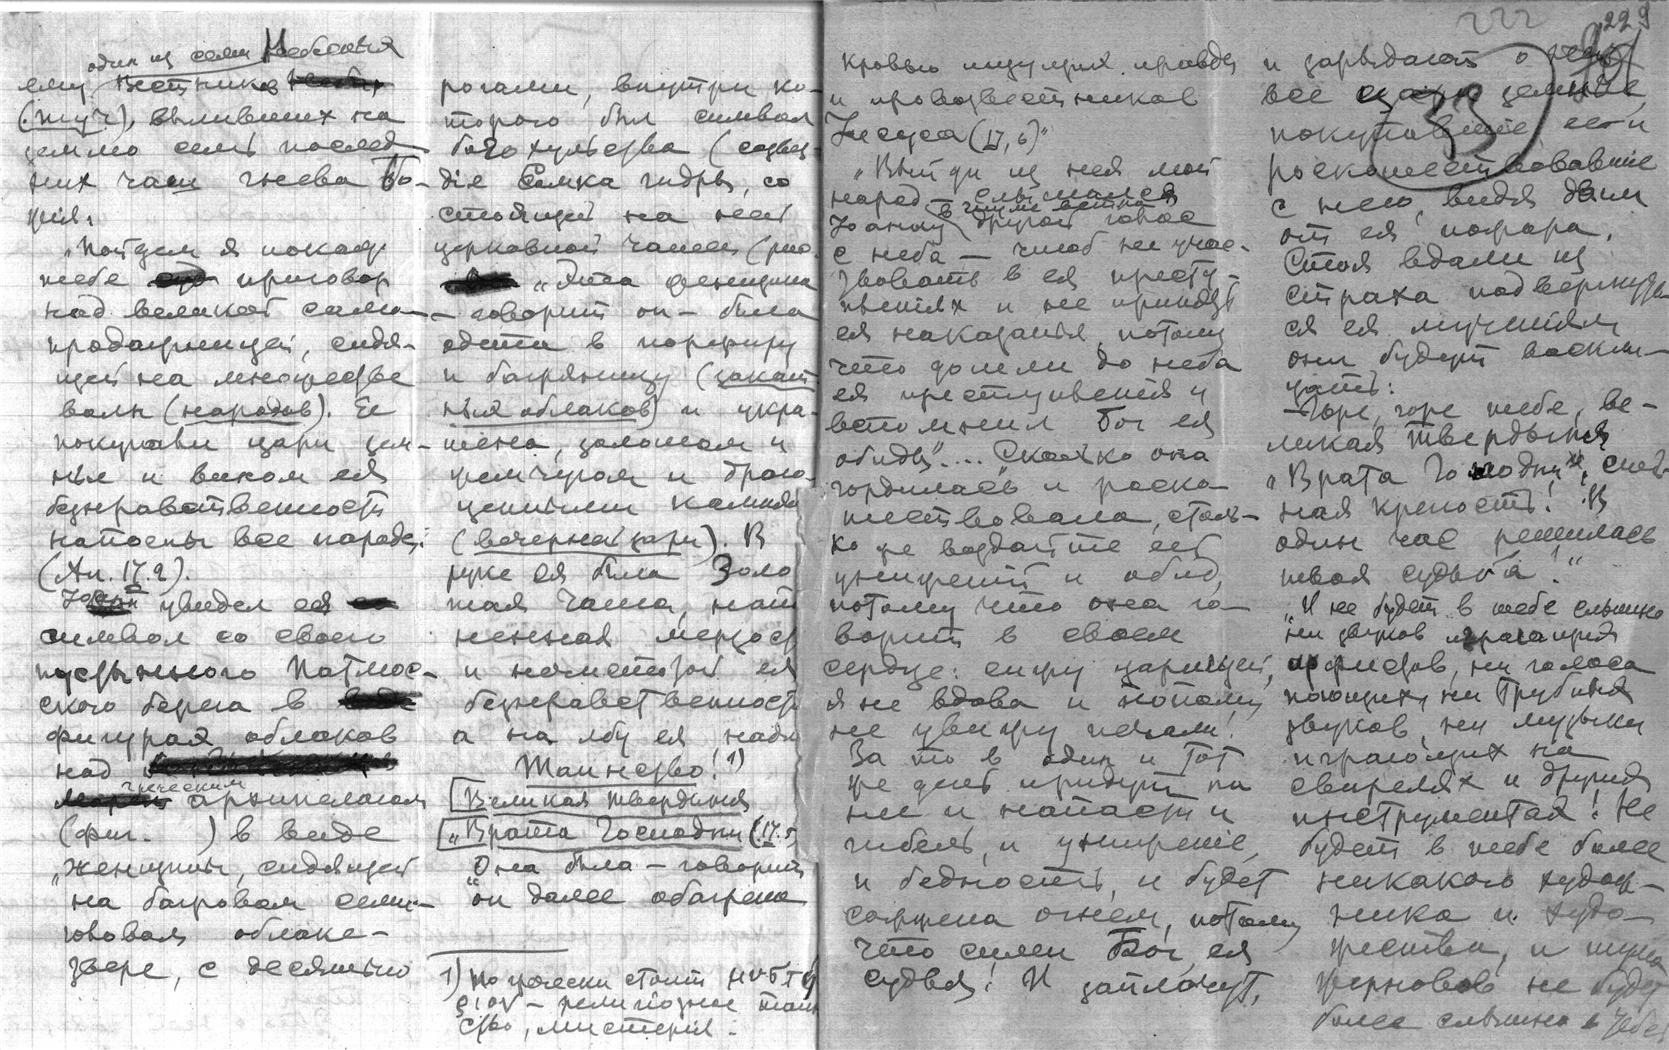 один из семи Небесных
ему Вестников
(туч), выливших на
землю семь послед-
них чаш гнева Бо-
жія.
„Пойдем я покажу
тебе приговор
над великой само-
продажницей, сидя-
щей на множестве
волн (народов). Ее
покупали цари зем-
ные и вином ея
безнравственности
напоены все народы
(Ап. 17.2).
Иоанн увидел ея
символ со своего
пустынного Патмос-
ского берега в
фигурах облаков
над
греческим
архипелагом
(фиг. ) в виде
„женщины, сидящей
на багровом семи-
головом облаке-
звере, с десятью
рогами, внутри ко-
торого был символ
богохульства (созвез-
діе Самка гидры, со
стоящей на ней
церковной чашей (рис.
„Эта женщина
— говорит он — была
одета в порфиру
и багряницу (закат-
ных облаков) и укра-
шена золотом и
жемчугом и драго-
ценными камнями
(вечерней зари). В
руке ея была Золо
тая чаша, напол
ненная мерзост
и нечистотой ея
безнравственности
а на лбу ея надпи
Таинство! 1)
Великая твердыня
„Врата Господни (17.5
„Она была — говорит
он далее обагрена
1) По гречески стоит
— религіозное таин
ство, мистерия.
229
33
кровью ищущих правды
и провозвестников
Іисуса (17,6)“
„Выйди из нея мой
народ — слышался
Іоанну в шуме ветра другой голос
с неба — чтоб не учас-
твовать в ея престу-
пленіях и не принять
ея наказанья, потому
что дошли до неба
ея преступленія и
вспомнил Бог ея
обиды“.... „Сколько она
гордилась и роско
шествовала, столь-
ко же воздайте ей
униженій и обид,
потому что она го-
ворит в своем
сердце: сижу царицей,
я не вдова и потому
не увижу печали!
За то в один и тот
же день придут на
нее и напасти и
гибель, и униженіе,
и бедность, и будет
сожжена огнем, потому
что силен Бог, ея
судья! И заплачут,
и зарыдают о ней
все цари земные,
покупавшіе ее и
роскошествовавшіе
с нею, видя дым
от ея пожара.
Стоя вдали из
страха подвергнуть
ся ея мученіям
они будут воскли-
цать:
— Горе, горе тебе, ве-
ликая твердыня
„Врата Господни“, силь-
ная крепость! В
один час решилась
твоя судьба!“
„И не будет в тебе слышно
ни звуков играющих
арфистов, ни голоса
поющих, ни трубных
звуков, ни музыки
играющих на
свирелях и других
инструментах! Не
будет в тебе более
никакого худож-
ника и худо-
жества, и шума
жерновов не будет
более слышно в тебе